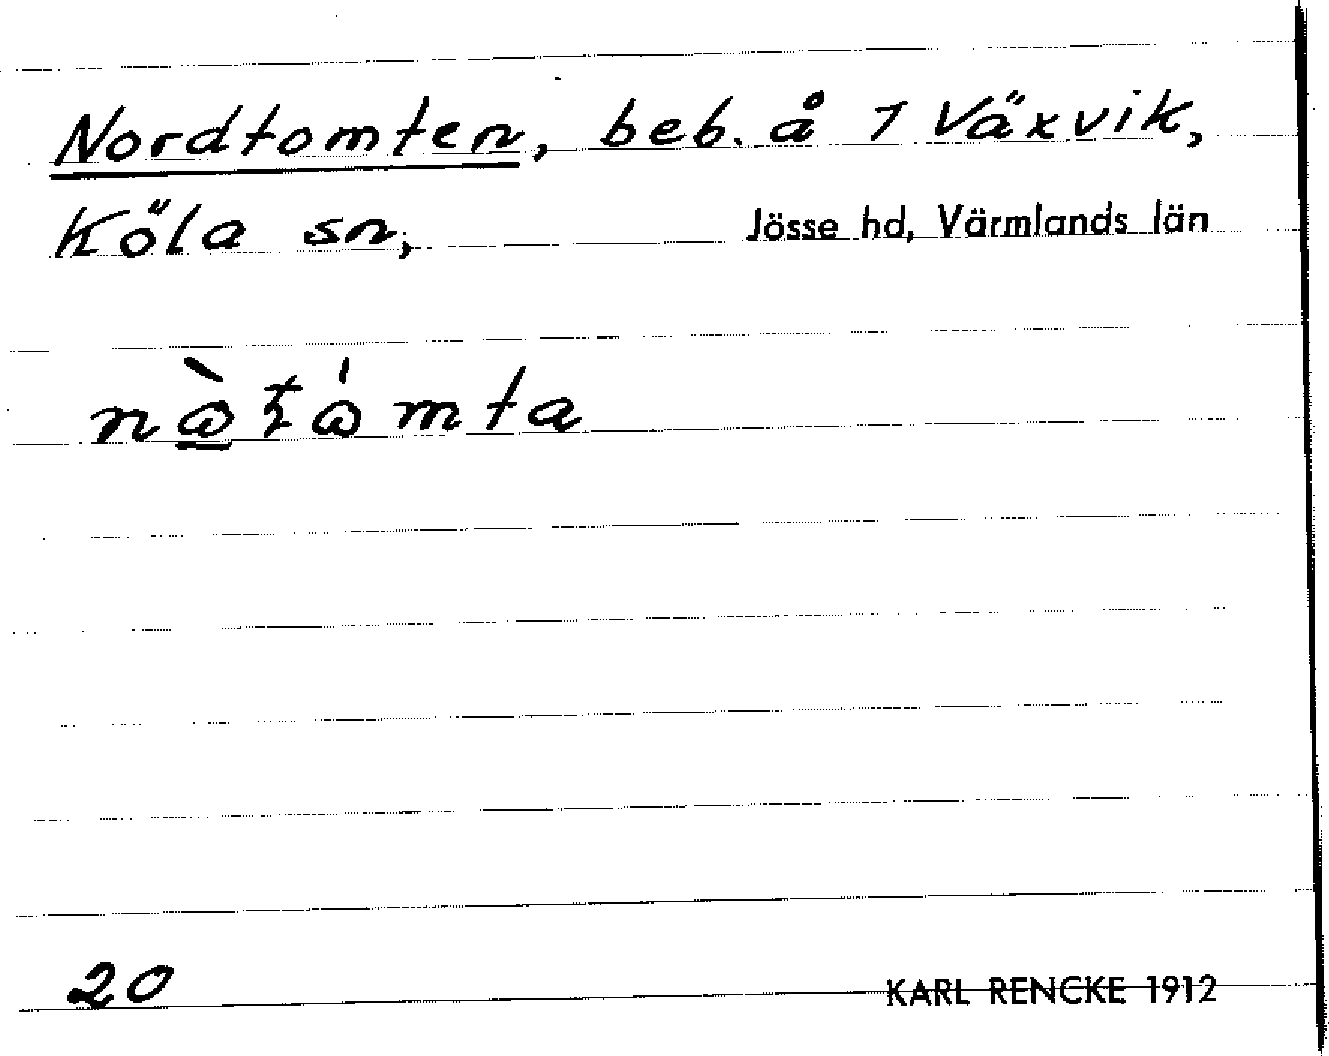 Nordtomten, beb. å 1 Växvik,
Köla sn, Jösse hd, Värmlands län
20
KARL RENCKE 1912